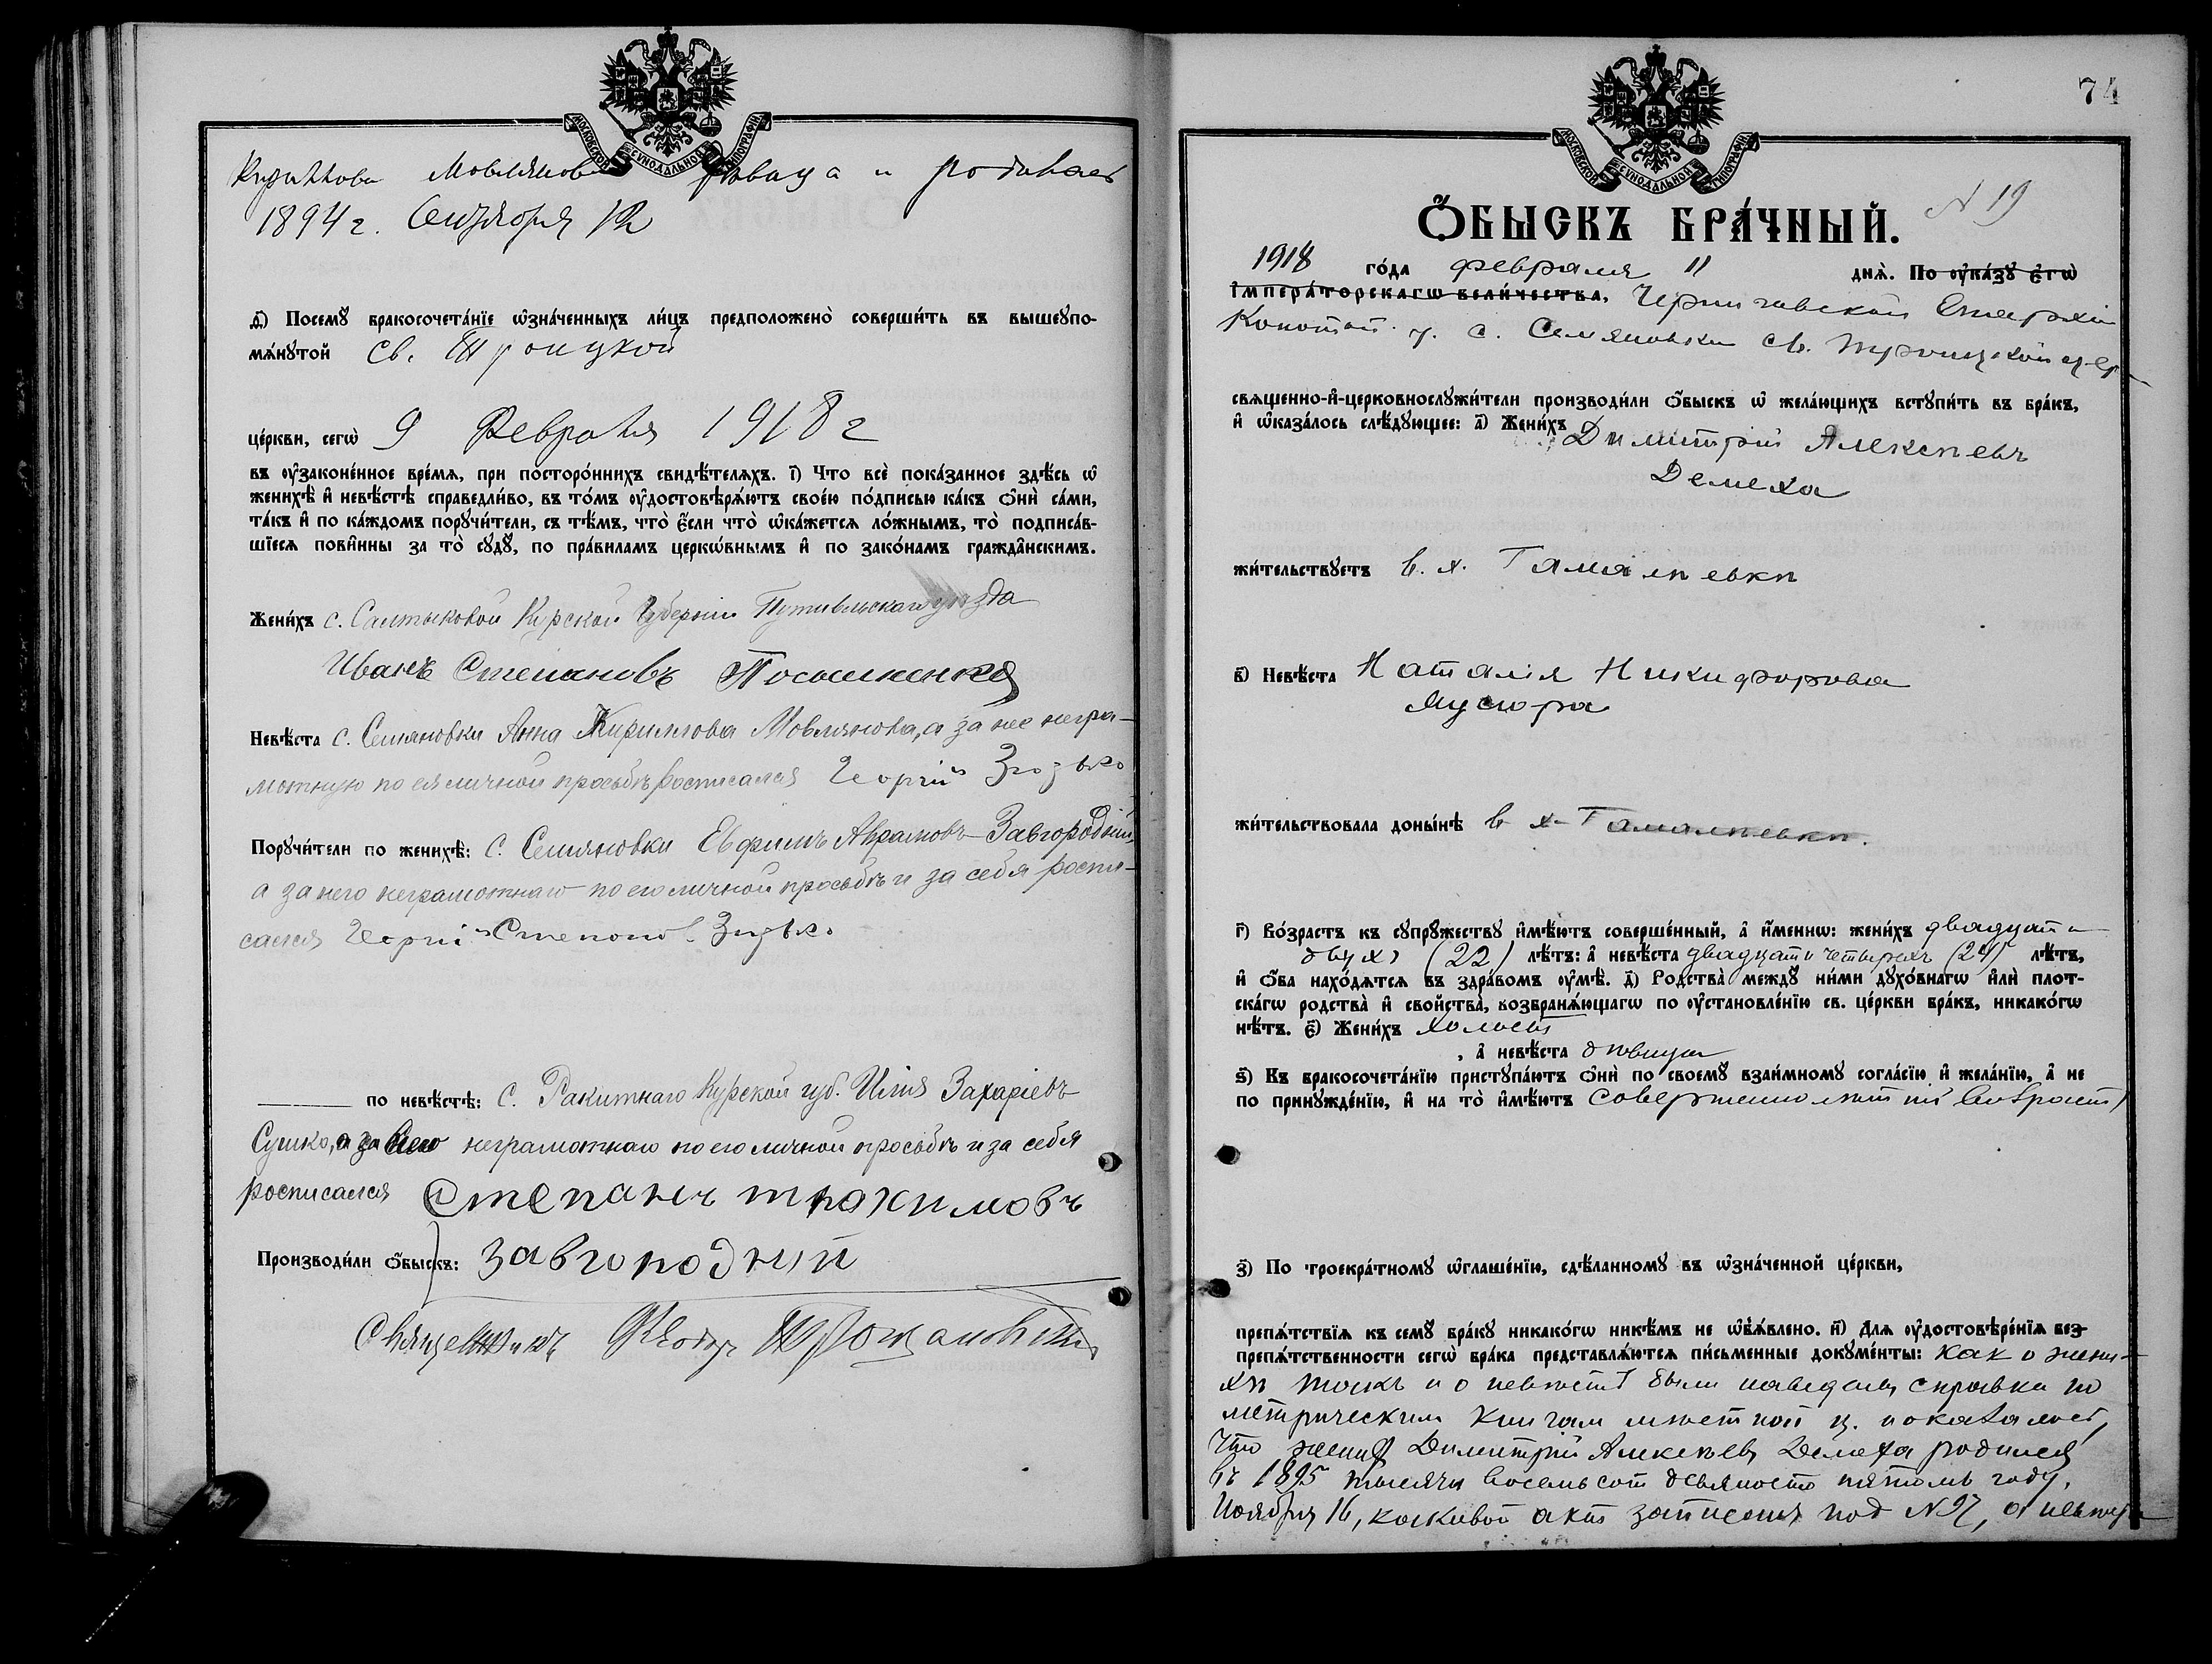 МОСКОВСКОЙ СѴНОДАЛЬНОЙ ТИПОГРАФІИ
Кириллова Мовлянова девица и родилась
1894 г. Сентября 12
д҃) Посемꙋ бракосочета́нїе ѡ҆зна́ченныхъ ли́цъ предположено̀ соверши́ть въ вышеꙋпо-
мѧ́нꙋтой св. Троицкой
це́ркви, сегѡ̀ 9 Февраля 1918 г
въ ᲂу҆законе́нное вре́мѧ, при посторо́ннихъ свидѣ́телѧхъ. і҃) Что всѐ пока́занное здѣ́сь ѡ҆
женихѣ̀ и҆ невѣ́стѣ справедли́во, въ то́мъ ᲂу҆достовѣрѧ́ютъ свое́ю по́дписью ка́къ ѻ҆нѝ са́ми,
та́къ и҆ по ка́ждомъ порꙋчи́тели, съ тѣ́мъ, что̀ є҆́сли что̀ ѡ҆ка́жетсѧ ло́жнымъ, то̀ подписа́в-
шїесѧ пови́нны за то̀ сꙋдꙋ̀, по пра́виламъ церкѡ́внымъ и҆ по зако́намъ гражда́нскимъ.
Жени́хъ с. Салтыковой Курской Губерніи Путивльскаго уѣзда
Иванъ Степановъ
Невѣ́ста с. Семяновки Анна Кириллова Мовлянова, а за нее негра-
мотную по ея личной просьбѣ росписался Георгій
Порꙋчи́тели по женихѣ̀: с. Семяновки Евфимъ Аврамовъ Завгородній,
а за него неграмотнаго по его личной просьбѣ и за себя роспи-
сался Георгій Степанов.
по невѣ́стѣ: с. Ракитнаго Курской губ. Илія Захаріевъ
Сушко, а за него неграмотнаго по его личной просьбѣ и за себя
росписался Степанъ трохимовъ
Производи́ли ѻ҆́быскъ: завгородний
Священникъ Ѳеодоръ
74
МОСКОВСКОЙ СѴНОДАЛЬНОЙ ТИПОГРАФІИ
N 19
Ѻ҆́БЫСКЪ БРА́ЧНЫЙ.
1918 го́да февраля 11 днѧ̀. По ᲂу҆ка́зꙋ є҆гѡ̀
і҆мпера́торскагѡ вели́чества, Черниговской Епархіи
Конотоп. у. с. Семяновки св. Троицкой цер
свѧще́нно-и҆-церковнослꙋжи́тели производи́ли ѻ҆́быскъ ѡ҆ жела́ющихъ встꙋпи́ть въ бра́къ,
и҆ ѡ҆каза́лось слѣ́дꙋющее: а҃) Жени́хъ Димитрій Алексѣевъ
Демеха
жи́тельствꙋетъ в. х. Гамалѣевкѣ
в҃) Невѣ́ста Наталія Никифорова
Мусюра
жи́тельствовала доны́нѣ в х. Гамалѣевкѣ.
г҃) Во́зрастъ къ сꙋпрꙋ́жествꙋ и҆мѣ́ютъ соверше́нный, а҆ и҆́меннѡ: жени́хъ двадцати
двухъ (22) лѣ́тъ: а҆ невѣ́ста двадцати четырехъ (24) лѣ́тъ,
и҆ ѻ҆́ба нахо́дѧтсѧ въ здра́вомъ ᲂу҆мѣ̀. д҃) Родства̀ междꙋ̀ ни́ми дꙋхо́внагѡ и҆лѝ плот-
ска́гѡ родства̀ и҆ сво́йства̀, возбранѧ́ющагѡ по ᲂу҆становле́нїю св. це́ркви бра́къ, никако́гѡ
нѣ́тъ. є҃) Жени́хъ холостъ
, а҆ невѣ́ста дѣвица
ѕ҃) Къ бракосочета́нїю пристꙋпа́ютъ ѻ҆нѝ по своемꙋ̀ взаи́мномꙋ согла́сїю и҆ жела́нїю, а҆ не
по принꙋжде́нїю, и҆ на то̀ и҆мѣ́ютъ совершеннолѣтній возрастъ
з҃) По троекра́тномꙋ ѡ҆глаше́нїю, сдѣ́ланномꙋ въ ѡ҆зна́ченной це́ркви,
препѧ́тствїѧ къ семꙋ̀ бра́кꙋ никако́гѡ никѣ́мъ не ѡ҆б̾ѧ́влено. и҃) Длѧ ᲂу҆достовѣре́нїѧ без-
препѧ́тственности сегѡ̀ бра́ка представлѧ́ютсѧ пи́сьменные докꙋме́нты: как о жени-
хѣ такъ и о невѣстѣ были наведены справки по
метрическим книгам мѣстной ц. показалось,
что жених Димитрій Алексѣевъ Демеха родился
въ 1895 тысяча восемьсот девяносто пятомъ году,
Ноября 16, каковой актъ записанъ под N 97, а невѣста